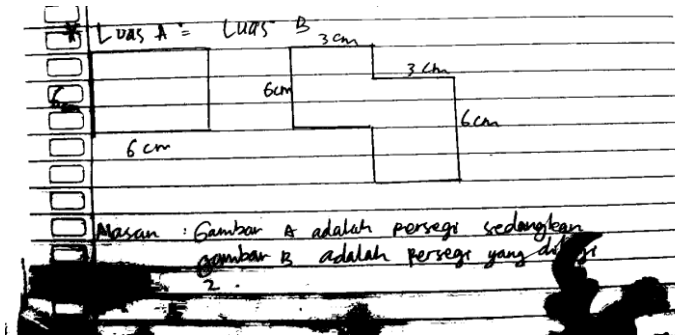 * Luas A = Luas B
3 cm
3 cm
6 cm
6cm
6 cm
6 cm
Alasan : Gambar A adalah persegi sedangkan
gambar B adalah persegi yang dibagi
2.